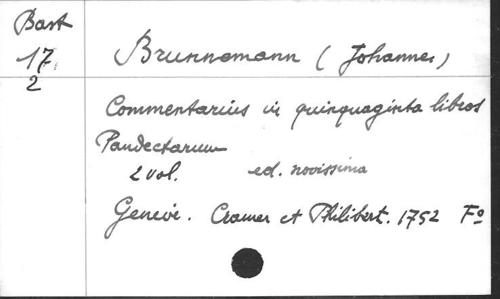 Bast
17
2
Brunnemann (Johannes)
Commentarius in quinquaginta libros
Pandectarum
2 vol. ed. novissima
Genevè. Cramer et Philibert. 1752 Fº